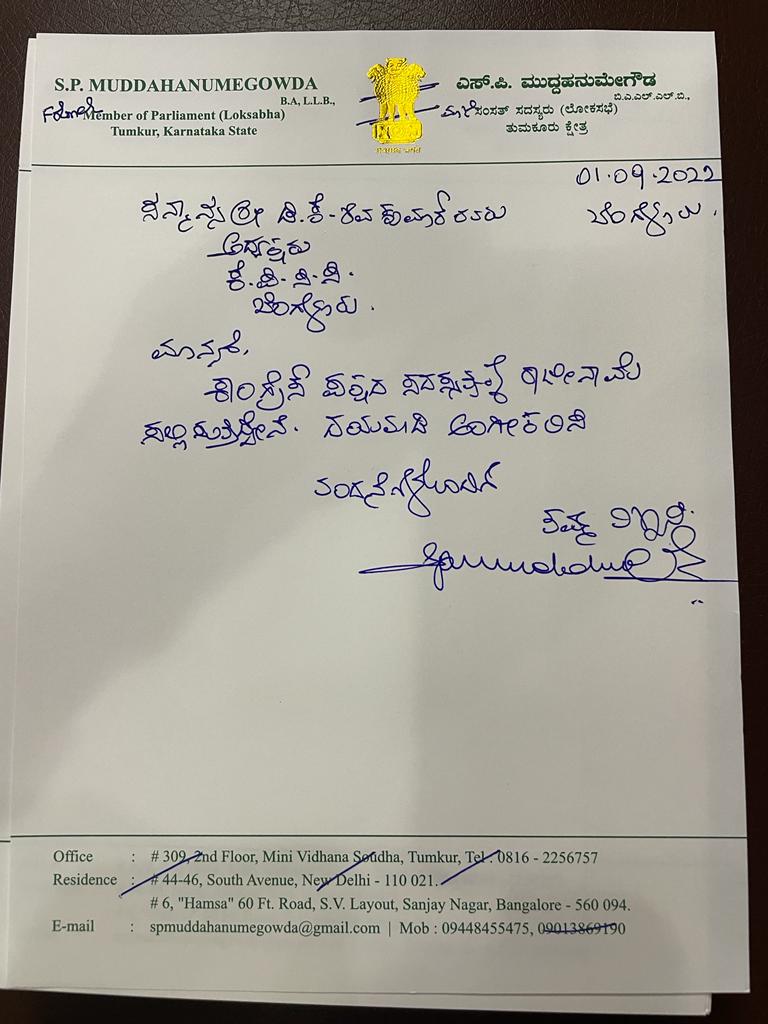 S.P. MUDDAHANUMEGOWDA
B.A, L.L.B.,
Former Member of Parliament (Loksabha)
Tumkur, Karnataka State
ಎಸ್.ಪಿ. ಮುದ್ದಹನುಮೇಗೌಡ
ಬಿ.ಎ.ಎಲ್.ಎಲ್.ಬಿ.,
ಮಾಜಿ ಸಂಸತ್ ಸದಸ್ಯರು (ಲೋಕಸಭೆ)
ತುಮಕೂರು ಕ್ಷೇತ್ರ
01.09.2022
ಬೆಂಗಳೂರು.
ಸನ್ಮಾನ್ಯ ಶ್ರೀ ಡಿ.ಕೆ. ಶಿವಕುಮಾರ್ ರವರು
ಅಧ್ಯಕ್ಷರು
ಕೆ.ಪಿ.ಸಿ.ಸಿ.
ಬೆಂಗಳೂರು.
ಮಾನ್ಯರೆ,
ಕಾಂಗ್ರೆಸ್ ಪಕ್ಷದ ಸದಸ್ಯತ್ವಕ್ಕೆ ರಾಜೀನಾಮೆ
ಸಲ್ಲಿಸುತ್ತಿದ್ದೇನೆ. ದಯಮಾಡಿ ಅಂಗೀಕರಿಸಿ
ವಂದನೆಗಳೊಂದಿಗೆ
ತಮ್ಮ ವಿಶ್ವಾಸಿ.
Office : # 309, 2nd Floor, Mini Vidhana Soudha, Tumkur, Tel : 0816 - 2256757
Residence : # 44-46, South Avenue, New Delhi - 110 021.
# 6, "Hamsa" 60 Ft. Road, S.V. Layout, Sanjay Nagar, Bangalore - 560 094.
E-mail : spmuddahanumegowda@gmail.com | Mob : 09448455475, 09013869190